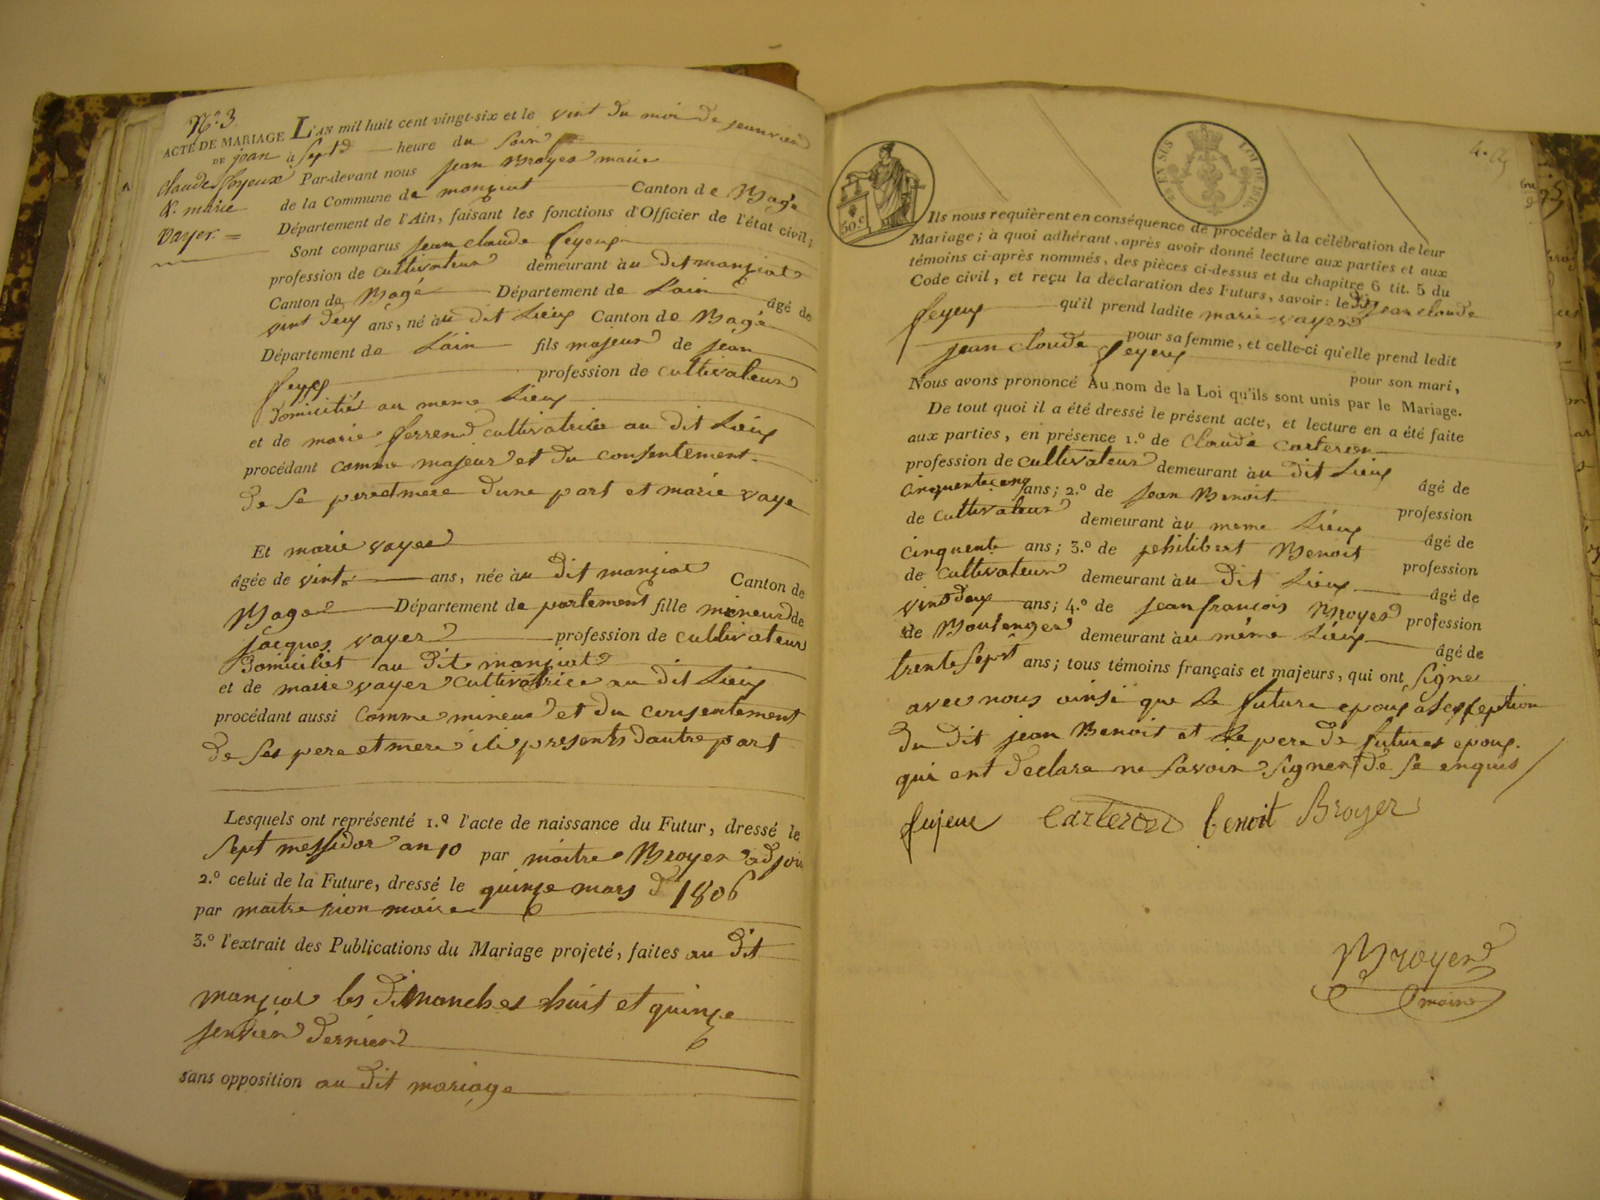 N.º 3
ACTE DE MARIAGE
DE jean
Claude feyeux
& marie
vayer. =
L'AN mil huit cent vingt-six et le vint du moi de jeanvier
à Sept heure du Soir
Par-devant nous jean Broyer maire
de la Commune de manziat Canton de Bagé
Département de l'Ain, faisant les fonctions d'Officier de l'état civil;
Sont comparus jean claude feyeux
profession de cultivateur demeurant àu dit manziat
Canton de Bagé Département de Lain âgé de
vint deux ans, né àu dit Lieux Canton de Bagé
Département de Lain fils majeur de jean
feyeux profession de cultivateur
domicilié au meme Lieux
et de marie ferrend cultivatrice au dit Lieux
procédant comme majeur et du consentement
de Se pere et mere dune part et marie vaye
Et marie vayer
âgée de vint ans, née àu dit manziat Canton de
Bagé Département de partement fille mineur de
jacques vayer profession de cultivateur
domiciliet au dit manziat
et de marie vayer cultivatrice au dit Lieux
procédant aussi comme mineur et du consentement
de Ses pere et mere ici presents dautre part
Lesquels ont représenté 1.º l'acte de naissance du Futur, dressé le
Sept messidor an 10 par maitre Broyer adjoin
2.º celui de la Future, dressé le quinze mars d 1806
par maitre rion maire
3.º l'extrait des Publications du Mariage projeté, faites au dit
manziat les dimanches huit et quinze
jenvier dernier
sans opposition au dit mariage
50 c
Ils nous requièrent en conséquence de procéder à la célébration de leur
Mariage; à quoi adhérant, après avoir donné lecture aux parties et aux
témoins ci-après nommés, des pièces ci-dessus et du chapitre 6 tit. 5 du
Code civil, et reçu la déclaration des Futurs, savoir: le dit jean claude
feyeux qu'il prend ladite marie vayer
pour sa femme, et celle-ci qu'elle prend ledit
jean claude feyeux pour son mari,
Nous avons prononcé Au nom de la Loi qu'ils sont unis par le Mariage.
De tout quoi il a été dressé le présent acte, et lecture en a été faite
aux parties, en présence 1.º de Claude carteron
profession de cultivateur demeurant àu dit Lieux âgé de
cinquente cinq ans; 2.º de jean Benoit profession
de cultivateur demeurant àu meme Lieux âgé de
cinquente ans; 3.º de philibert Benoit profession
de cultivateur demeurant àu dit Lieux âgé de
vint deux ans; 4.º de jean françois Broyer profession
de Boulenger demeurant àu même Lieux âgé de
trente Sept ans; tous témoins français et majeurs, qui ont Signer
avec nous ainsi que Le future epoux a Lexseption
du dit jean Benoit et Le pere de futures epoux
qui ont declare ne Savoir Signer de Se enquis
fejeux Carteron benoit Broyer
Broyer
maire